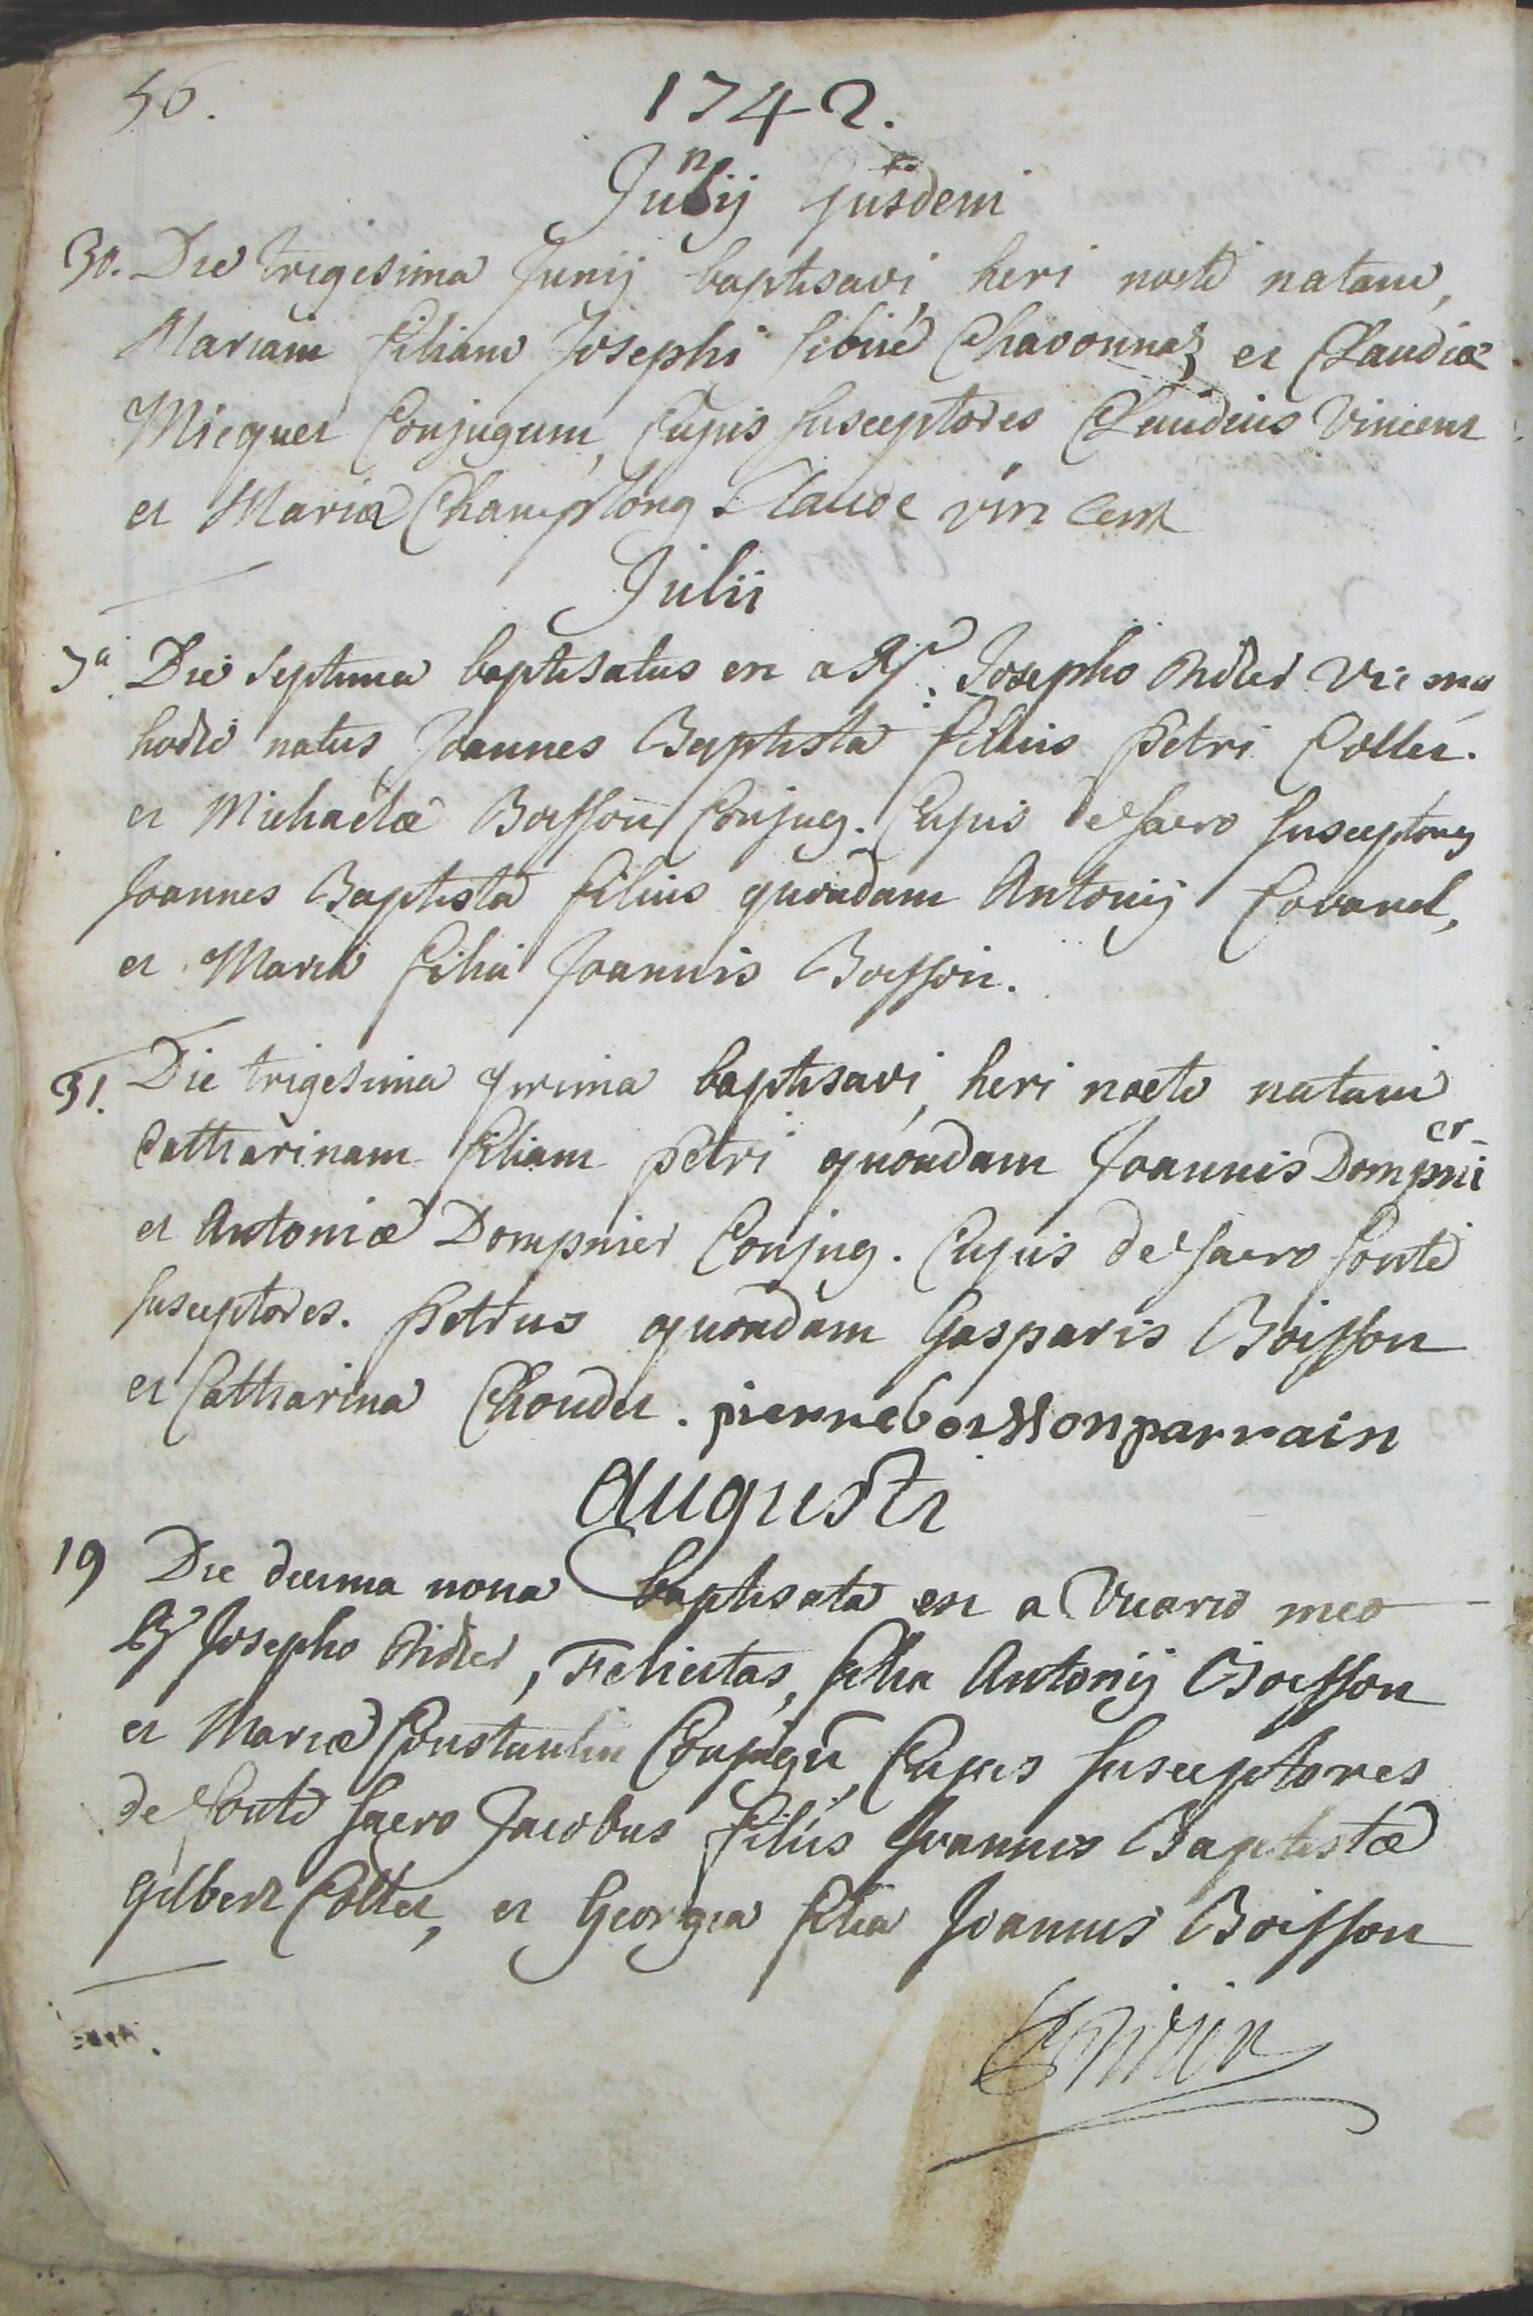 56.
1742.
Junij Ejusdem
30. Die trigesima Junij baptisavi, heri nocte natam,
Mariam filiam Josephi Sibué Chavonnaz et Claudiæ
Micquet Conjugum, Cujus susceptores Claudius Vincent
et Maria Champlong. Claude vin cent
Julii
7a Die septima baptisatus est a Rd. Josepho Didier Vic meo
hodie natus Joannes Baptista filius Petri Collet.
et Michaelæ Boisson Conjug. Cujus de sacro susceptores
Joannes Baptista filius quondam Antonij Covarel,
et Maria filia Joannis Boisson.
31. Die trigesima prima baptisavi, heri nocte natam
Catharinam filiam Petri quondam Joannis Dompnier
et Antoniæ Dompnier Conjug. Cujus de sacro fonte
susceptores. Petrus quondam Gasparis Boisson
et Catharina Choudet. pierre boisson parrain
Augusti
19 Die decima nona baptisata est a Vicario meo
Rd Josepho Didier, Felicitas, filia Antonij Boisson
et Mariæ Constantin Conjugū, Cujus susceptores
de fonte sacro Jacobus filius Joannis Baptistæ
Gilbert Collet, et Georgia filia Joannis Boisson